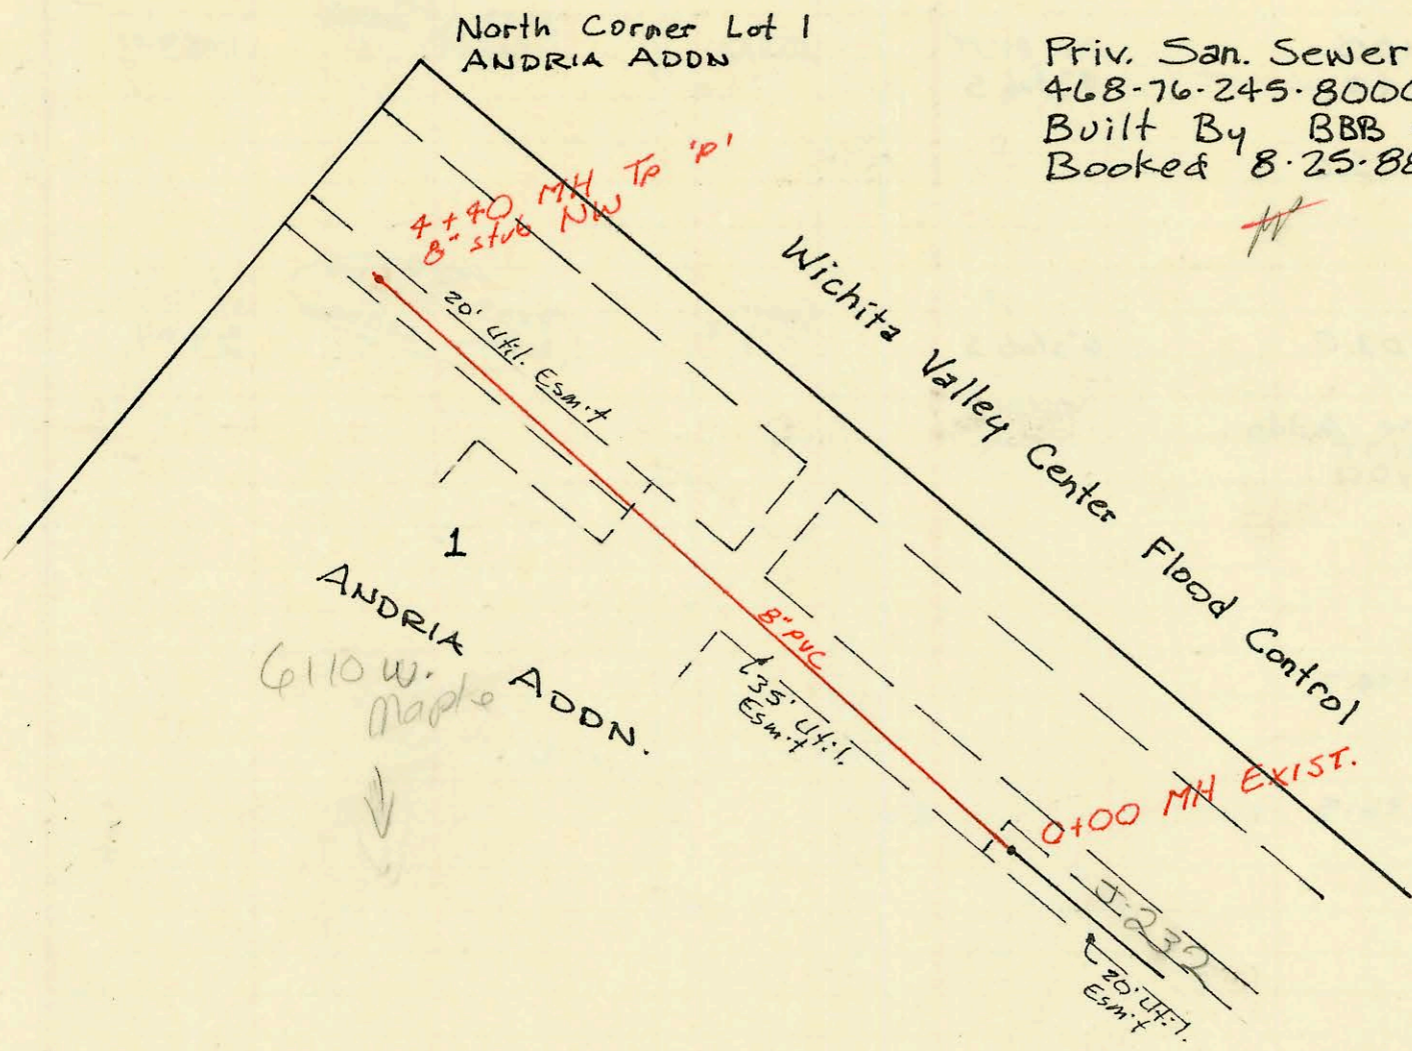 North Corner Lot 1
ANDRIA ADDN
Priv. San. Sewer
468-76-245-8000
Built By BBB
Booked 8-25-88
4+40 MH Tp 'P'
8" stub NW
Wichita Valley Center Flood Control
20' Util. Esm't
1
ANDRIA ADDN.
6110 W.
Maple
8" PVC
35' Util.
Esm't
0+00 MH EXIST.
J-232
20' Util.
Esm't